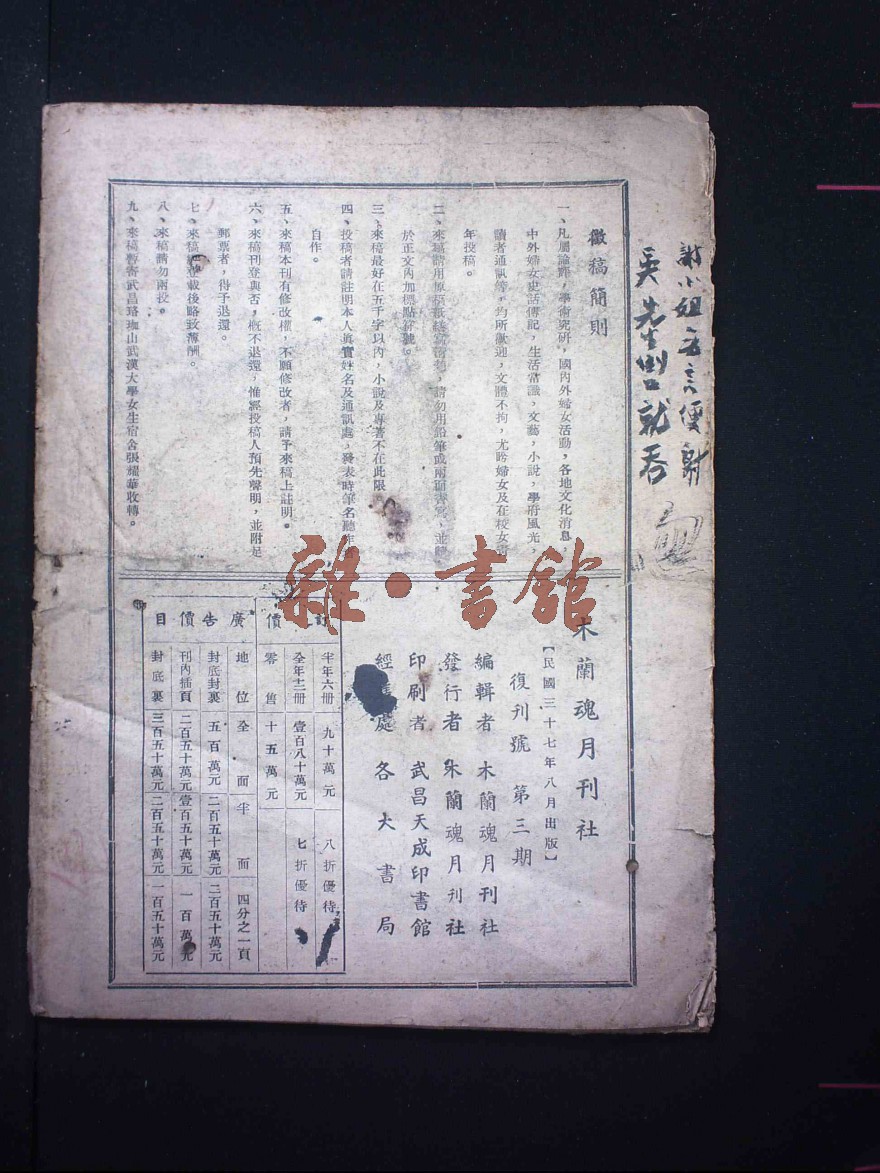 謝小姐方言便射
吳先生出口就吞
徵稿簡則
一、凡屬論評，學術究研，國內外婦女活動，各地文化消息，
中外婦女史話傳記，生活常識，文藝，小說，學府風光，
讀者通訊等，均所歡迎，文體不拘，尤盼婦女及在校女
年投稿。
二、來稿請用原稿紙繕寫清楚，請勿用鉛筆或兩面書寫，並
於正文內加標點符號。
三、來稿最好在五千字以內，小說及專著不在此限
四、投稿者請註明本人眞實姓名及通訊處，發表時筆名聽作
自作。
五、來稿本刊有修改權，不願修改者，請予來稿上註明。
六、來稿刊登與否，概不退還，惟經投稿人預先聲明，並附足
郵票者，得予退還。
七、來稿登載後略致薄酬。
八、來稿請勿兩投。
九、來稿暫寄武昌珞珈山武漢大學女生宿舍張耀華收轉。
木蘭魂月刊社
【民國三十七年八月出版】
復刊號 第三期
編輯者 木蘭魂月刊社
發行者 木蘭魂月刊社
印刷者 武昌天成印書館
經 處 各大書局
訂 價
半年六冊 九十萬元 八折優待
全年十二冊 壹百八十萬元 七折優待
零售 十五萬元
廣告價目
地位 全面 半面 四分之一頁
封底封裏 五百萬元 二百五十萬元 二百五十萬元
刊內插頁 二百五十萬元 壹百五十萬元 一百萬元
封底裏 三百五十萬元 二百五十萬元 一百五十萬元
雜·書館